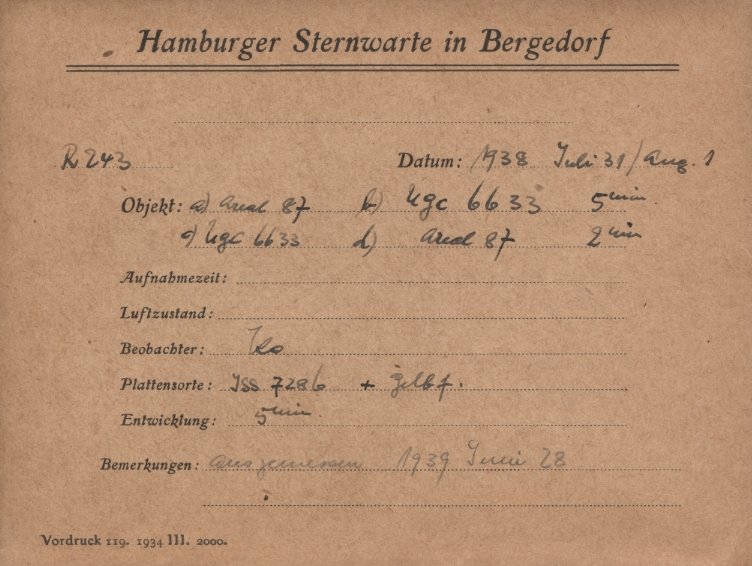 Hamburger Sternwarte in Bergedorf
R 243 Datum: 1938 Juli 31/Aug. 1
Objekt: a) Areal 87 b) Ngc 6633 5 min.
c) Ngc 6633 d) Areal 87 2 min
Aufnahmezeit:
Luftzustand:
Beobachter: Ko
Plattensorte: Iss 7286 + gelbf.
Entwicklung: 5 min.
Bemerkungen: ausgemessen 1939 Juni 28
Vordruck 119. 1934 III. 2000.